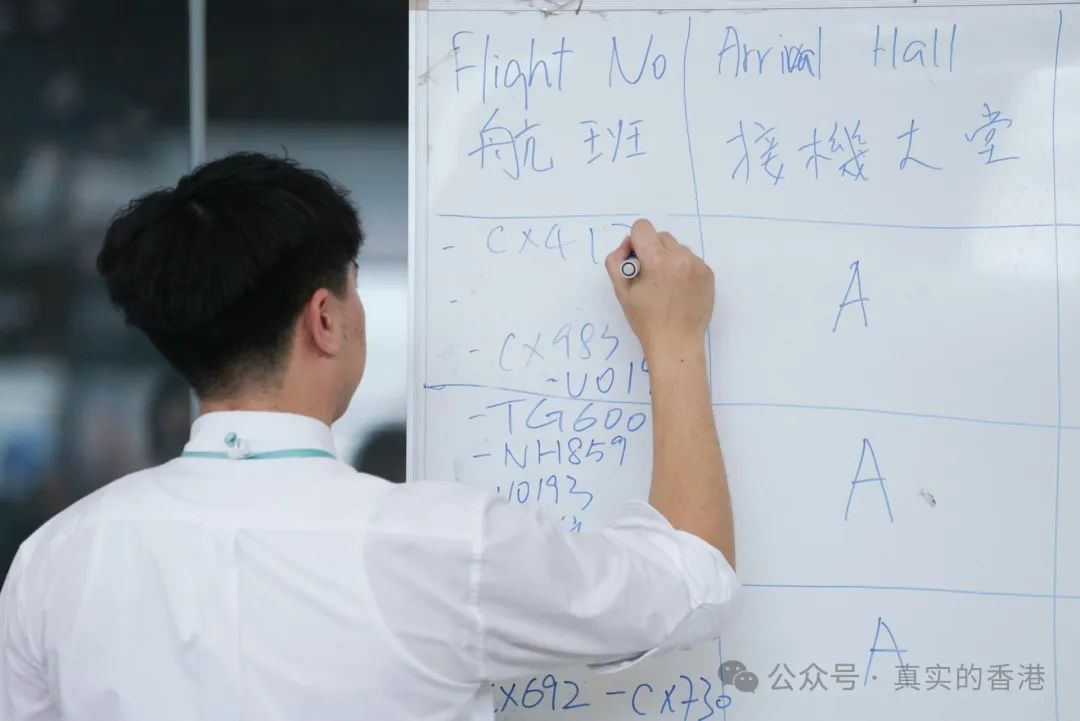 Flight No
Arrival Hall
航班
接機大堂
- CX41
A
-
- CX983
- UO19
- TG600
- NH859
A
UO193
A
CX692 - CX730
公众号 · 真实的香港